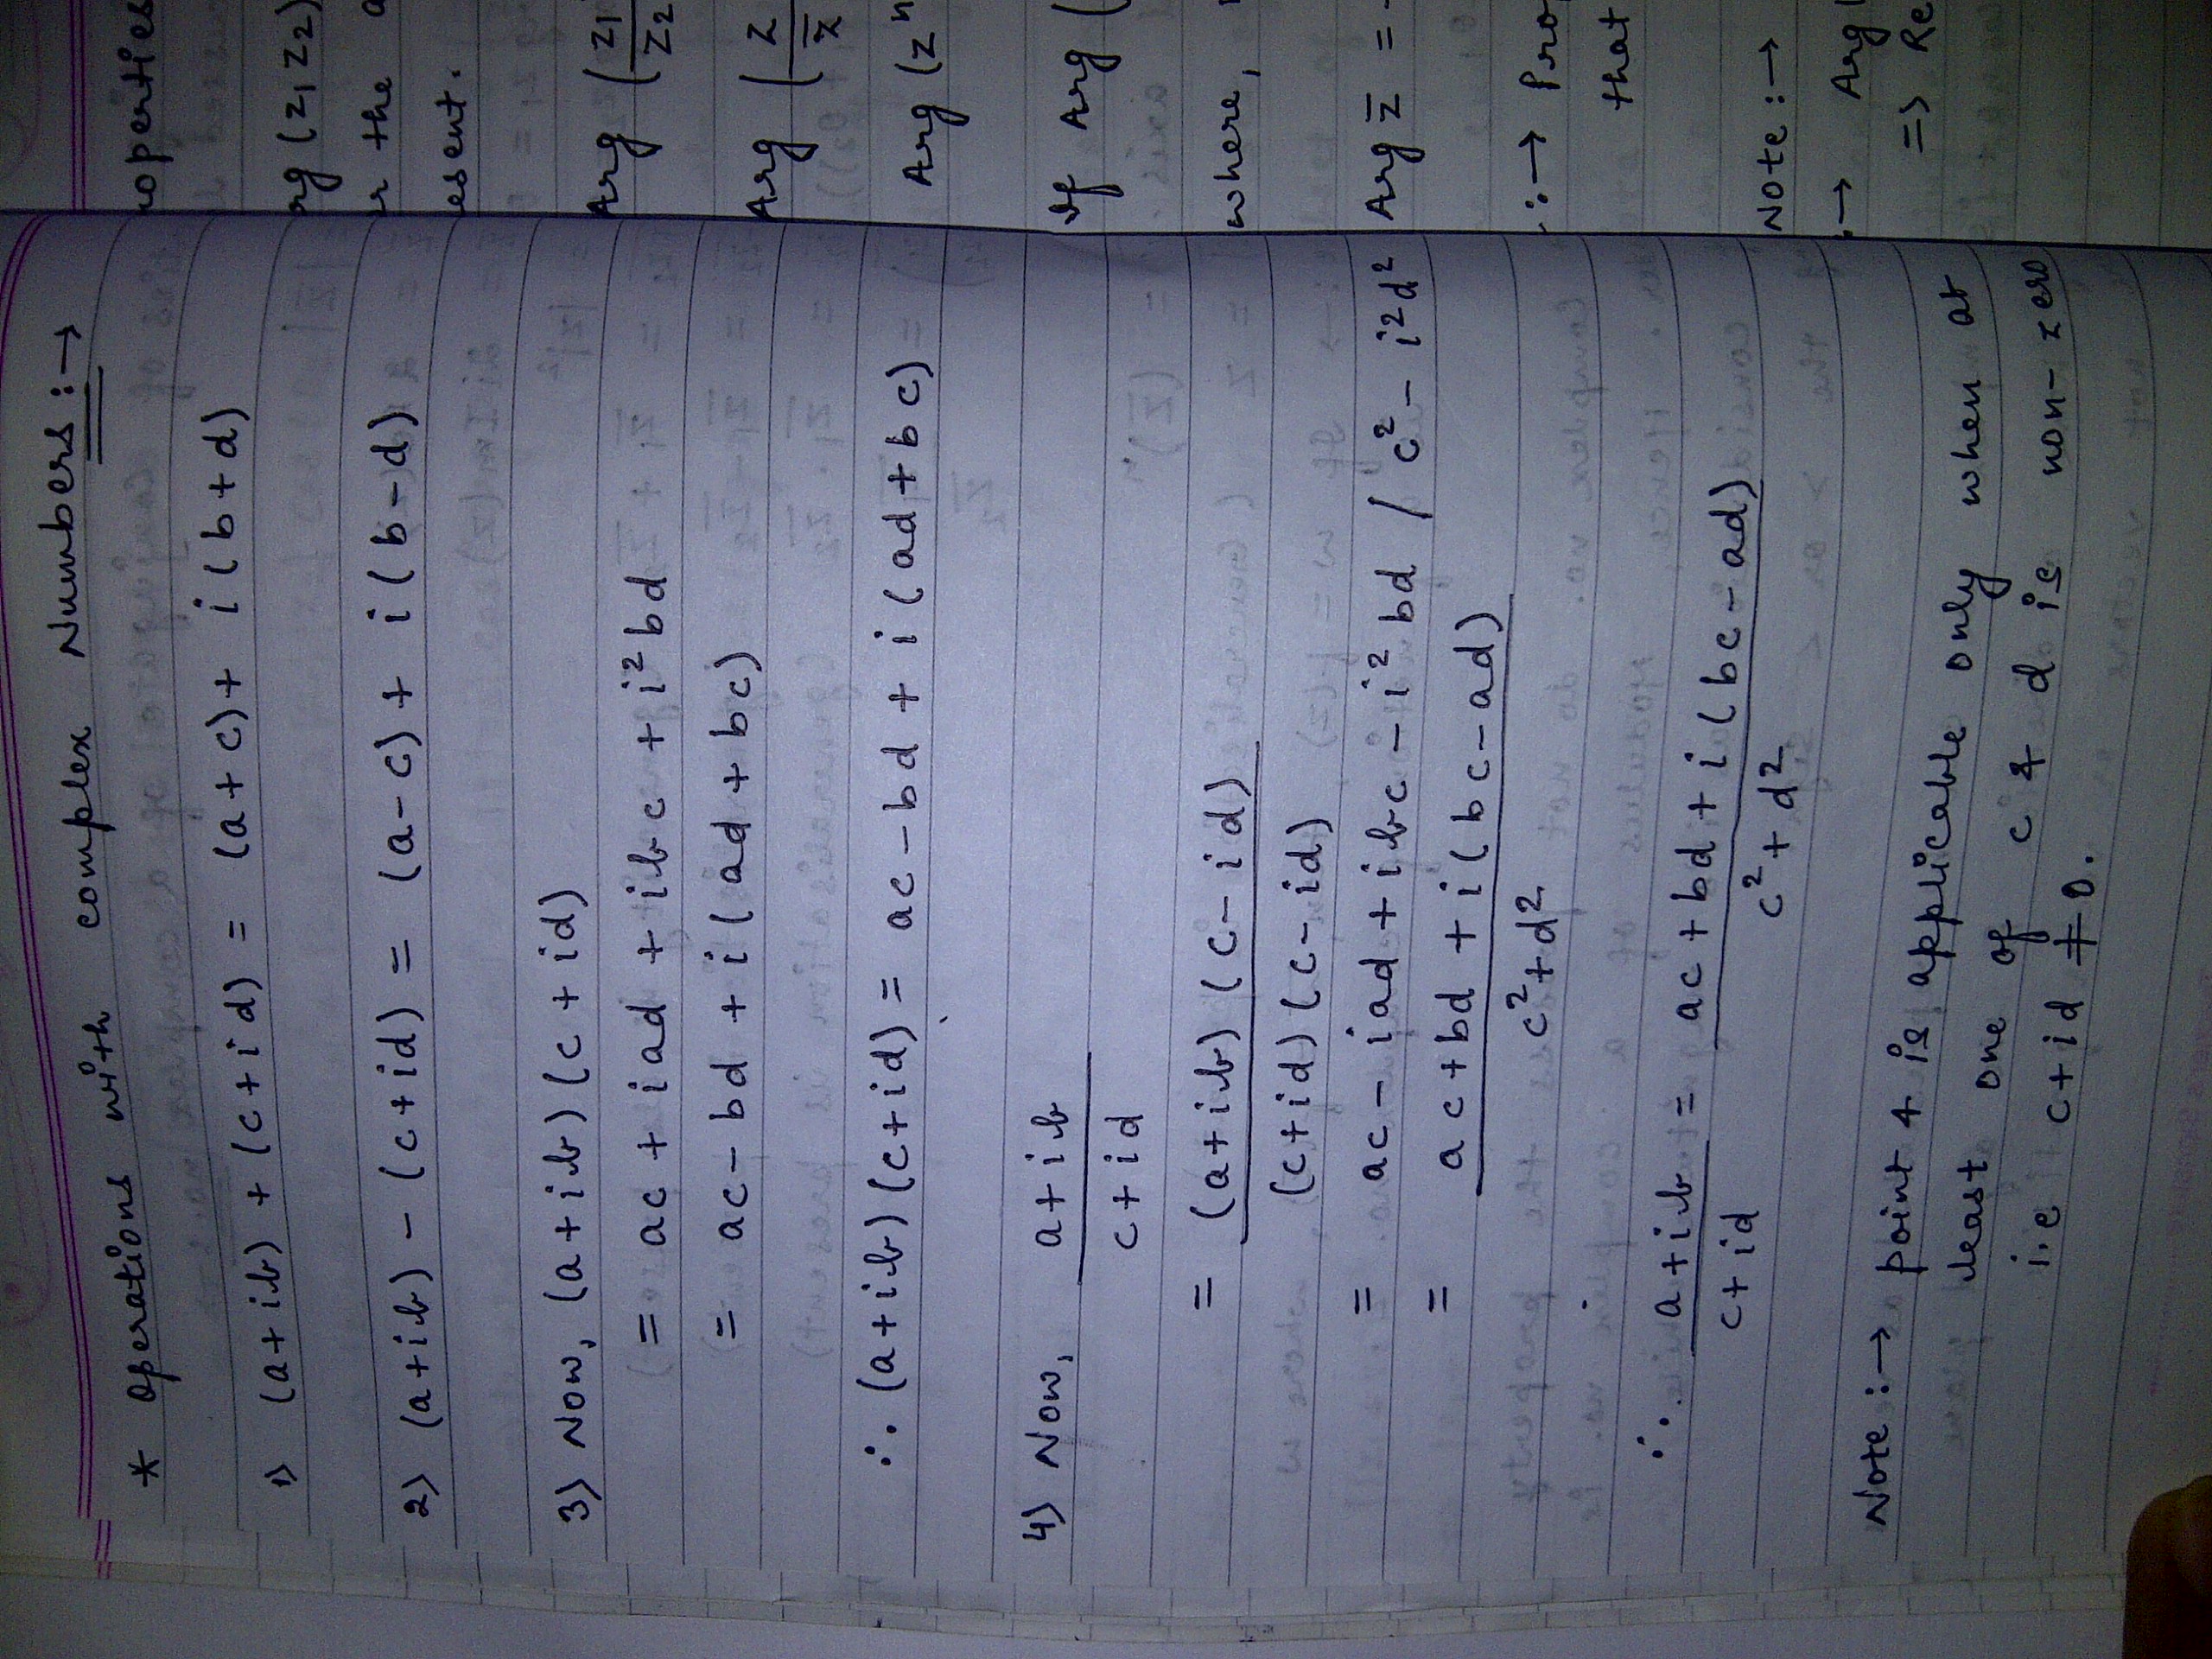 * Operations with complex Numbers :→
1) (a+ib) + (c+id) = (a+c) + i(b+d)
2) (a+ib) - (c+id) = (a-c) + i(b-d)
3) Now, (a+ib)(c+id)
= ac + iad + ibc + i²bd
= ac - bd + i(ad+bc)
∴ (a+ib)(c+id) = ac - bd + i(ad+bc)
4) Now, a+ib
c+id
= (a+ib)(c-id)
(c+id)(c-id)
= ac - iad + ibc - i²bd / c² - i²d²
= ac+bd + i(bc-ad)
c²+d²
∴ a+ib = ac+bd+i(bc-ad)
c+id c²+d²
Note :→ point 4 is applicable only when at
least one of c & d is non-zero
i.e c+id ≠ 0.
roperties
rg (z₁z₂)
the
esent.
Arg (z₁
z₂
Arg (z
z̅
Arg (zⁿ
If Arg (
where,
Arg z̅ = -
:→ Pro
that
Note :→
→ Arg (
=> Re